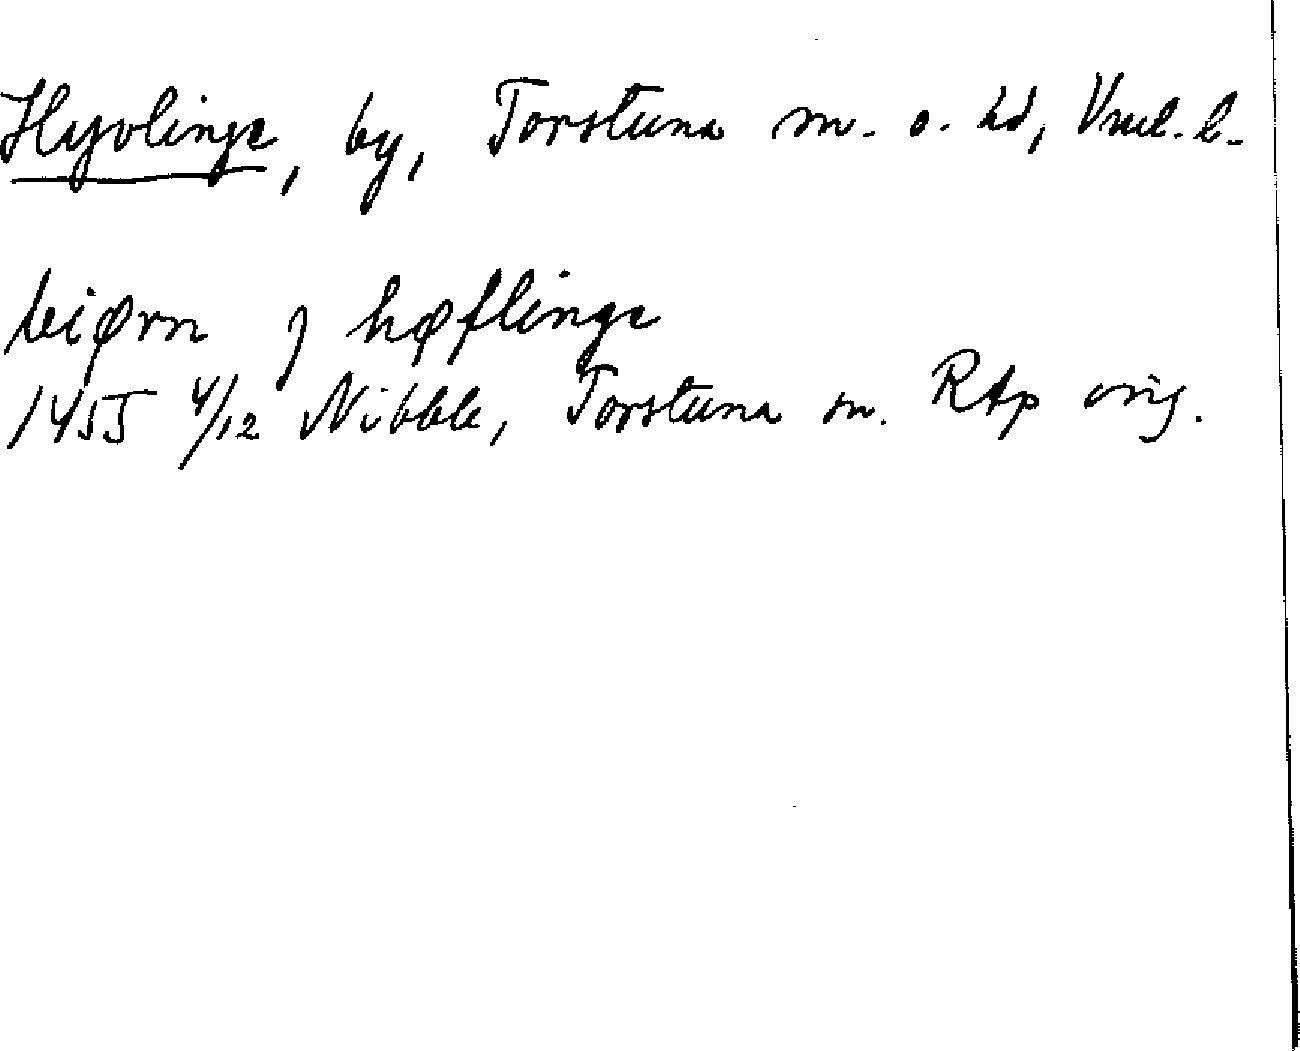 Hyvlinge, by, Torstuna sn. o. hd, Vml. l.
biørn j høflinge
1455 4/12 Nibble, Torstuna sn. RAp orig.